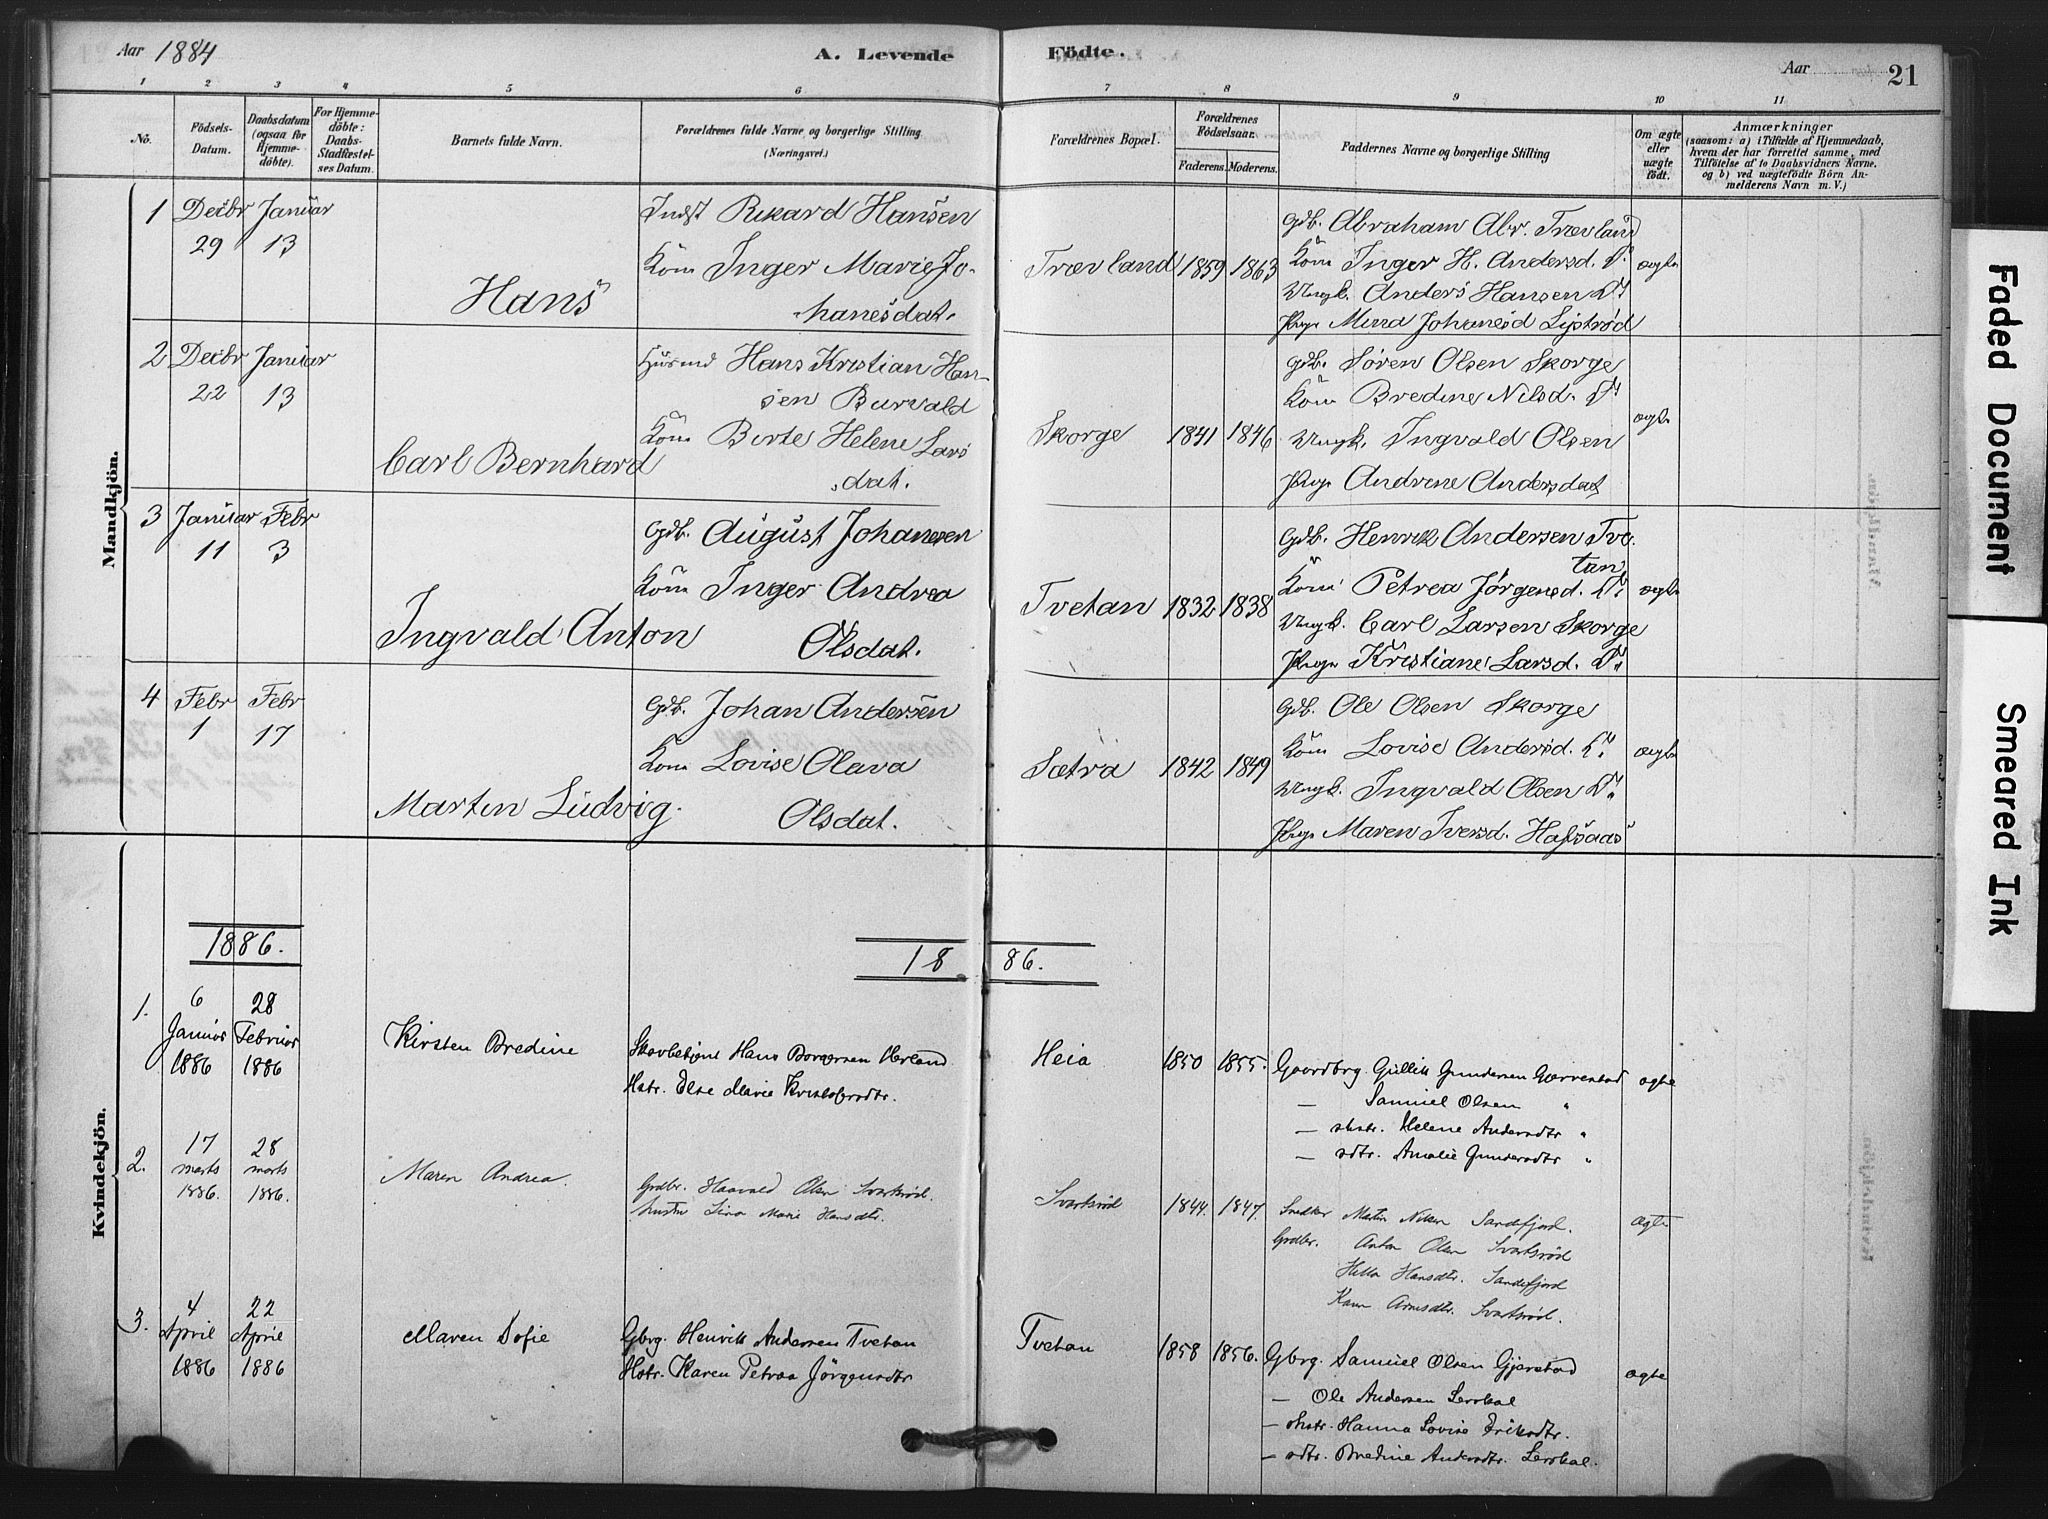 Aar 1884
A. Levende Födte.
Aar
21
1 2 3 4 5 6 7 8 9 10 11
No.
Födsels-
Datum.
Daabsdatum
(ogsaa for
Hjemme-
döbte).
For Hjemme-
döbte:
Daabs-
Stadfæstel-
ses Datum.
Barnets fulde Navn.
Forældrenes fulde Navne og borgerlige Stilling
(Næringsvei.)
Forældrenes Bopæl.
Forældrenes
Födselsaar.
Faderens. Moderens.
Faddernes Navne og borgerlige Stilling
Om ægte
eller
uægte
født.
Anmærkninger
(saasom: a) i Tilfælde af Hjemmedaab,
hvem der har forrettet samme, med
Tilföielse af to Daabsvidners Navne.
og b) ved uægtefödte Börn An-
melderens Navn m. V.)
Mandkjön.
1
Decbr
29
Januar
13
Hans
Indst Rikard Hansen
Kone Inger Marie Jo-
hanesdat.
Trævland
1859
1863
Gdb. Abraham Abr. Trævland
Kone Inger H. Andersd. Dº
Ungk. Anders Hansen Dº
Pige Mina Johanesd Lystrød
ægte
2
Decbr
22
Januar
13
Carl Bernhard
Husmd Hans Kristian Han-
sen Burvald
Kone Berte Helene Lars
dat.
Skorge
1841
1846
Gdb. Søren Olsen Skorge
Kone Bredine Nilsd. Dº
Ungk. Ingvald Olsen
Pige Andrine Andersdat
ægte
3
Januar
11
Febr
3
Ingvald Anton
Gdb. August Johanesen
Kone Inger Andrea
Olsdat.
Tvetan
1832
1838
Gdb. Henrik Andersen Tve
tan
Kone Petrea Jørgensd. Dº
Ungk. Carl Larsen Skorge
Pige Kristiane Larsd. Dº
ægte
4
Febr
1
Febr
17
Marten Ludvig.
Gdb. Johan Andersen
Kone Lovise Olava
Olsdat.
Sætra
1842
1849
Gdb. Ole Olsen Skorge
Kone Lovise Andersd. Dº
Ungk. Ingvald Olsen Dº
Pige Maren Iversd. Hafsaas
ægte
Kvindekjön.
1886.
18 86.
1.
6
Januar
1886
28
Februar
1886
Kirsten Bredine
Hans Overland
Hstr. Else Marie Kristofersdtr.
Heia
1850
1855.
Gaardbrg. Gullik Gundersen
— Samuel Olsen "
— Hstr. Helene Andersdtr "
— dtr. Amalie Gundersdtr "
ægte
2.
17
marts
1886.
28
marts
1886.
Maren Andrea.
Grdbr. Haavald Olsen Svartsrød.
hustru Lina Marie Hansdtr.
Svartsrød
1844.
1847.
Snedker Martin Nilsen Sandefjord.
Grdbr. Anton Olsen Svartsrød
Hansdtr. Sandefjord
Svartsrød.
ægte
3.
4
April
1886
22
April
1886
Maren Sofie
Gbrg. Henrik Andersen Tvetan
Hstr. Karen Petrea Jørgensdtr
Tvetan
1858
1856.
Gbrg. Samuel Olsen Gjerstad
— Ole Andersen Lerskal
— Hstr. Hanna Lovise Eriksdtr.
— dtr. Bredine Andersdtr. Lerskal.
ægte
Faded Document
Smeared Ink